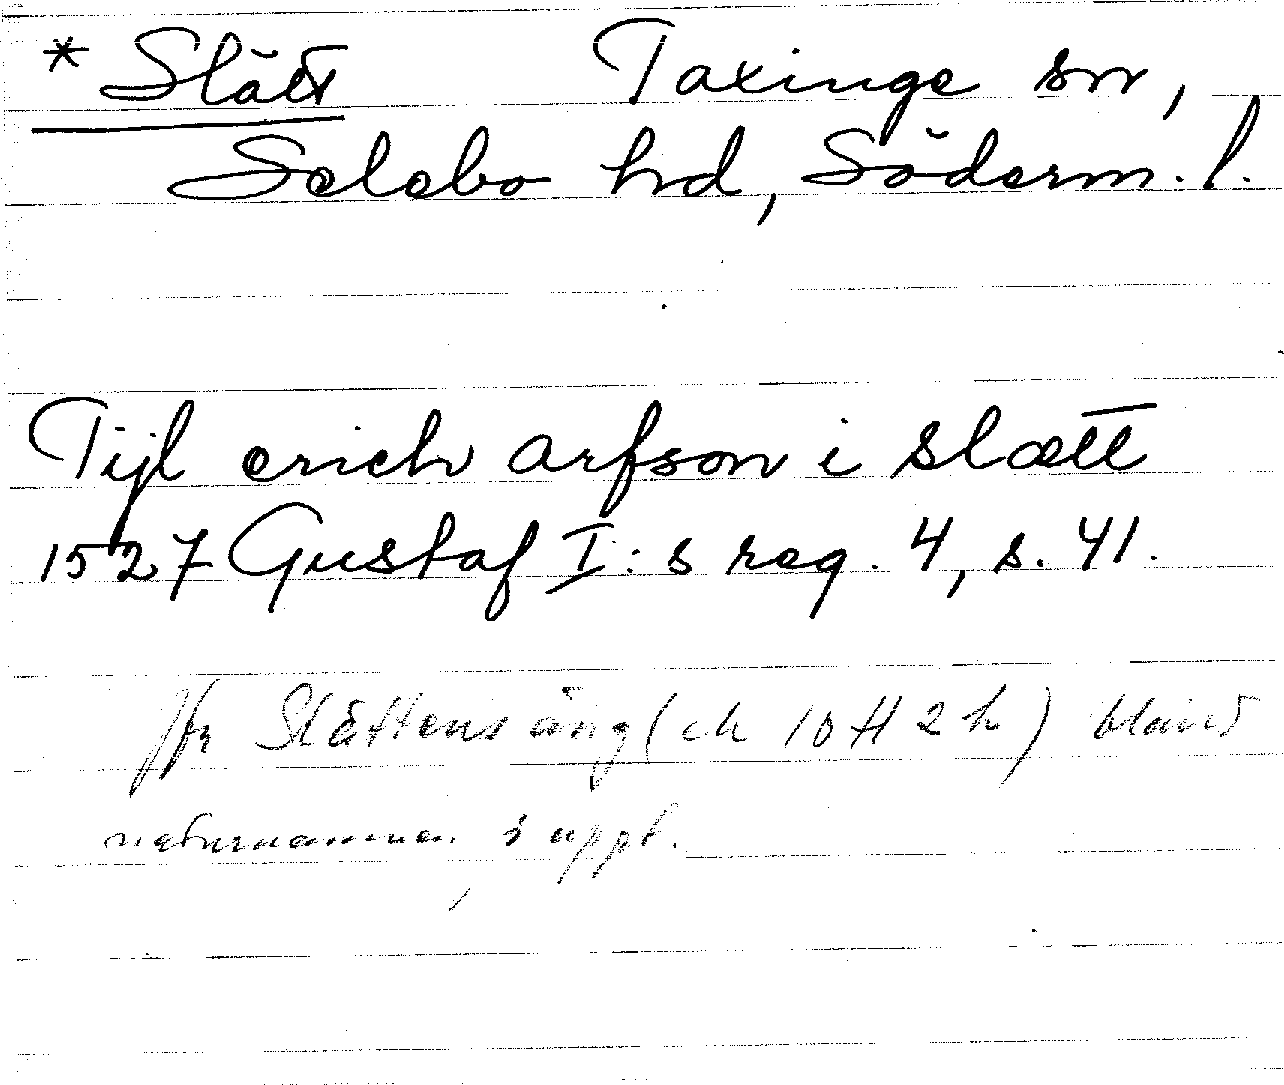 * Slätt Taxinge sn,
Selebo hd, Söderm. l.
Tijl erich arfson i slætt
1527 Gustaf I:s reg. 4, s. 41.
Jfr Slättens äng (ek 10H 2h) bland
naturnamnen, s uppt.